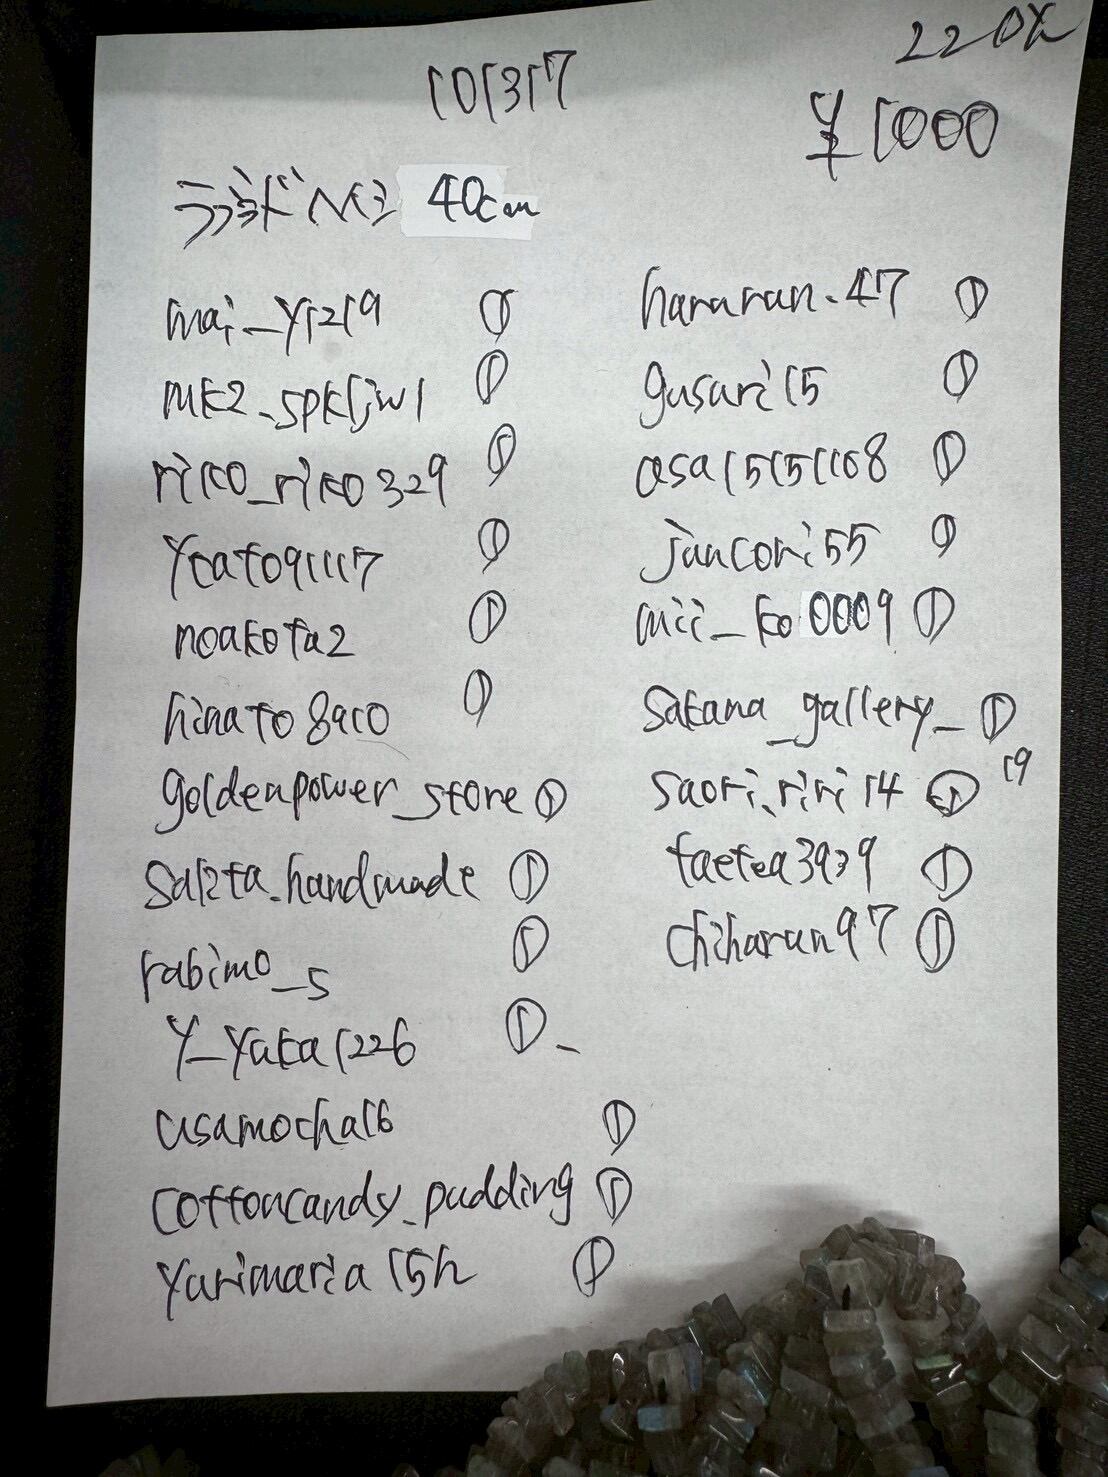 101317
220%
¥1000
40cm
mai_y1219 ①
mk2_spkljw1 ①
riko_riko329 ①
noakota2 ①
hinato8910 ①
goldenpower_store ①
salzta_handmade ①
rabimo_s ①
y_yuka1226 ①
usamocha16 ①
cottoncandy_pudding ①
yurimaria15h ①
hararan.47 ①
gusari15 ①
asa15151108 ①
jancori55 ①
mii_ko0009 ①
sakana_gallery_ ①
saori.riri14 ① 19
taetea3939 ①
chiharun97 ①